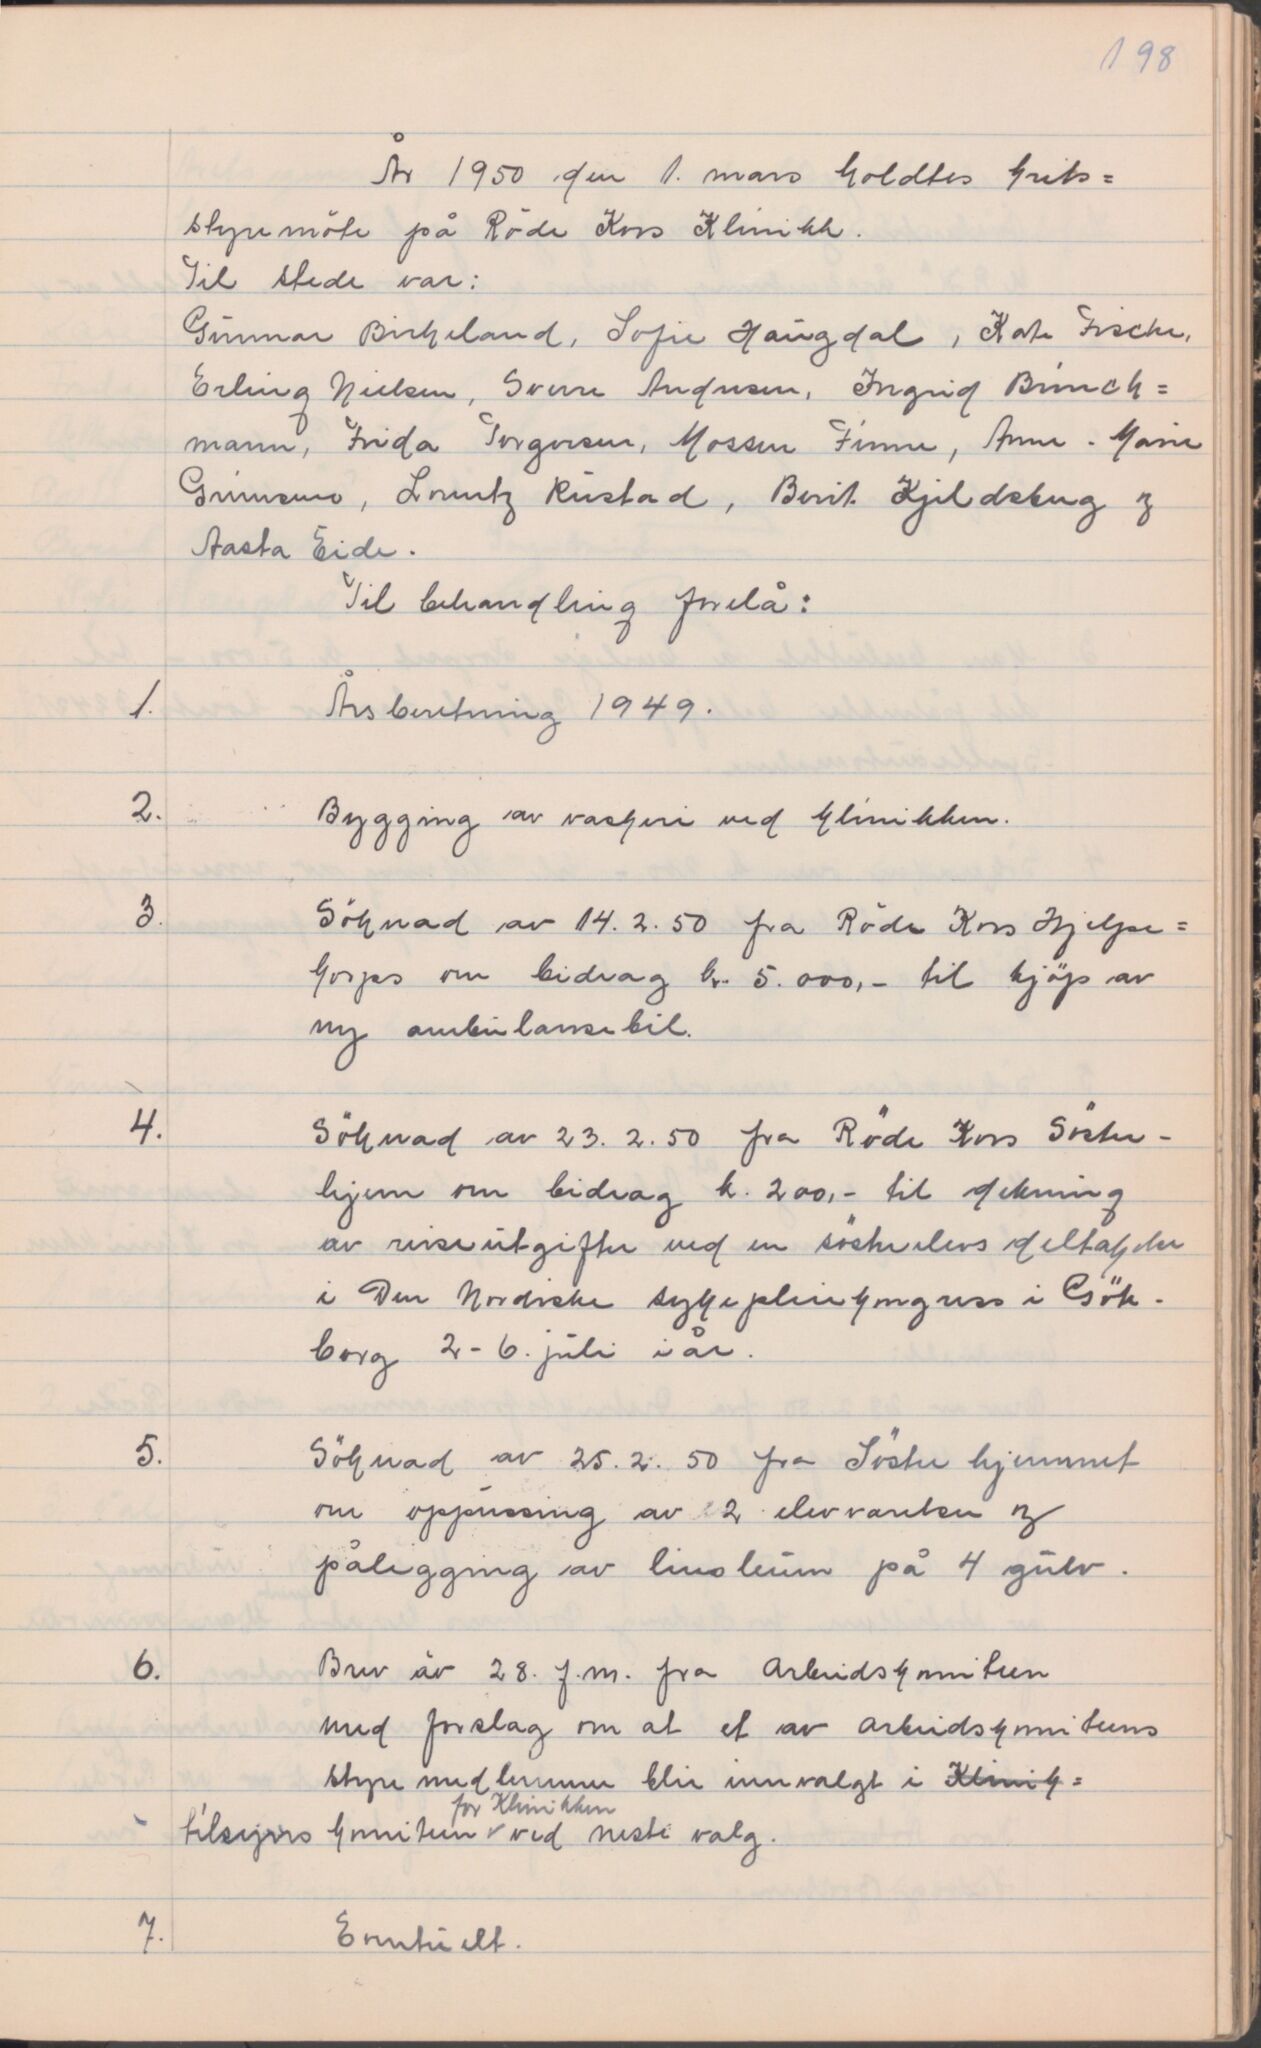 198
År 1950 den 1. mars holdtes krets=
styremöte på Röde Kors Klinikk.
Til stede var:
Gunnar Birkeland, Sofie Haugdal, Kate Fischer,
Erling Nielsen, Sverre Andresen, Ingrid Brinch=
mann, Frida Torgersen, Mossen Finne, Anne-Marie
Lorentz Rustad, Berit Kjeldsberg og
Aasta Eide.
Til behandling forelå:
1. Årsberetning 1949.
2. Bygging av vaskeri ved klinikken.
3. Söknad av 14.2.50 fra Röde Kors Hjelpe=
korps om bidrag kr. 5.000,- til kjöp av
ny ambulansebil.
4. Söknad av 23.2.50 fra Röde Kors Söster-
hjem om bidrag kr. 200,- til dekning
av reiseutgifter ved en söster elevs deltakelse
i Den Nordiske sykepleiekongress i Göte-
borg 2-6. juli i år.
5. Söknad av 25.2.50 fra Söster hjemmet
om oppussing av 2 elevværelser og
pålegging av linoleum på 4 gulv.
6. Brev av 28. f.m. fra arbeidskomiteen
med forslag om at et av arbeidskomiteens
styremedlemmer blir innvalgt i Klinik=
for Klinikken
tilsynskomiteen ved neste valg.
7. Eventuelt.